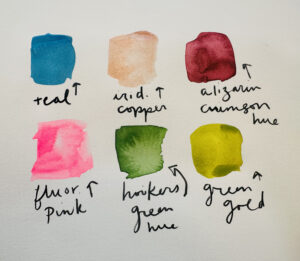 teal
irid.
copper
alizarin
crimson
hue
fluor.
pink
hookers
green
hue
green
gold